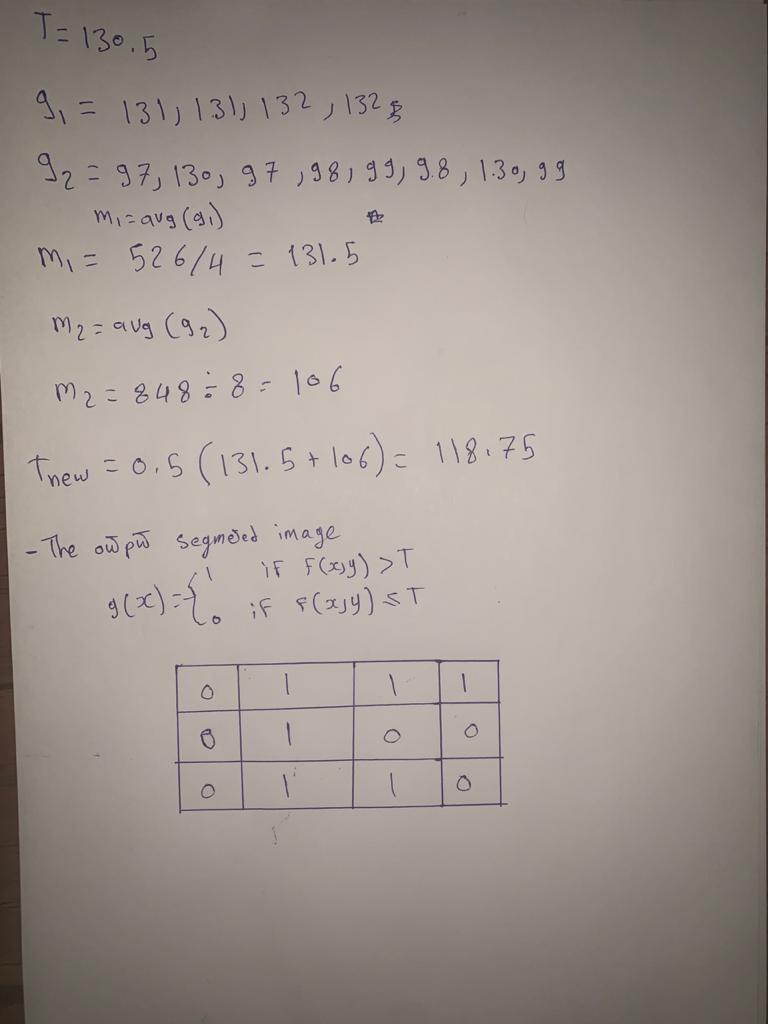 T = 130.5
g₁ = 131, 131, 132, 132
g₂ = 97, 130, 97, 98, 99, 98, 130, 99
m₁ = avg(g₁)
m₁ = 526/4 = 131.5
m₂ = avg(g₂)
m₂ = 848 ÷ 8 = 106
Tnew = 0.5 (131.5 + 106) = 118.75
- The output segmeted image
g(x) = { 1 if f(x,y) > T
0 if f(x,y) ≤ T
0 1 1 1
0 1 0 0
0 1 1 0